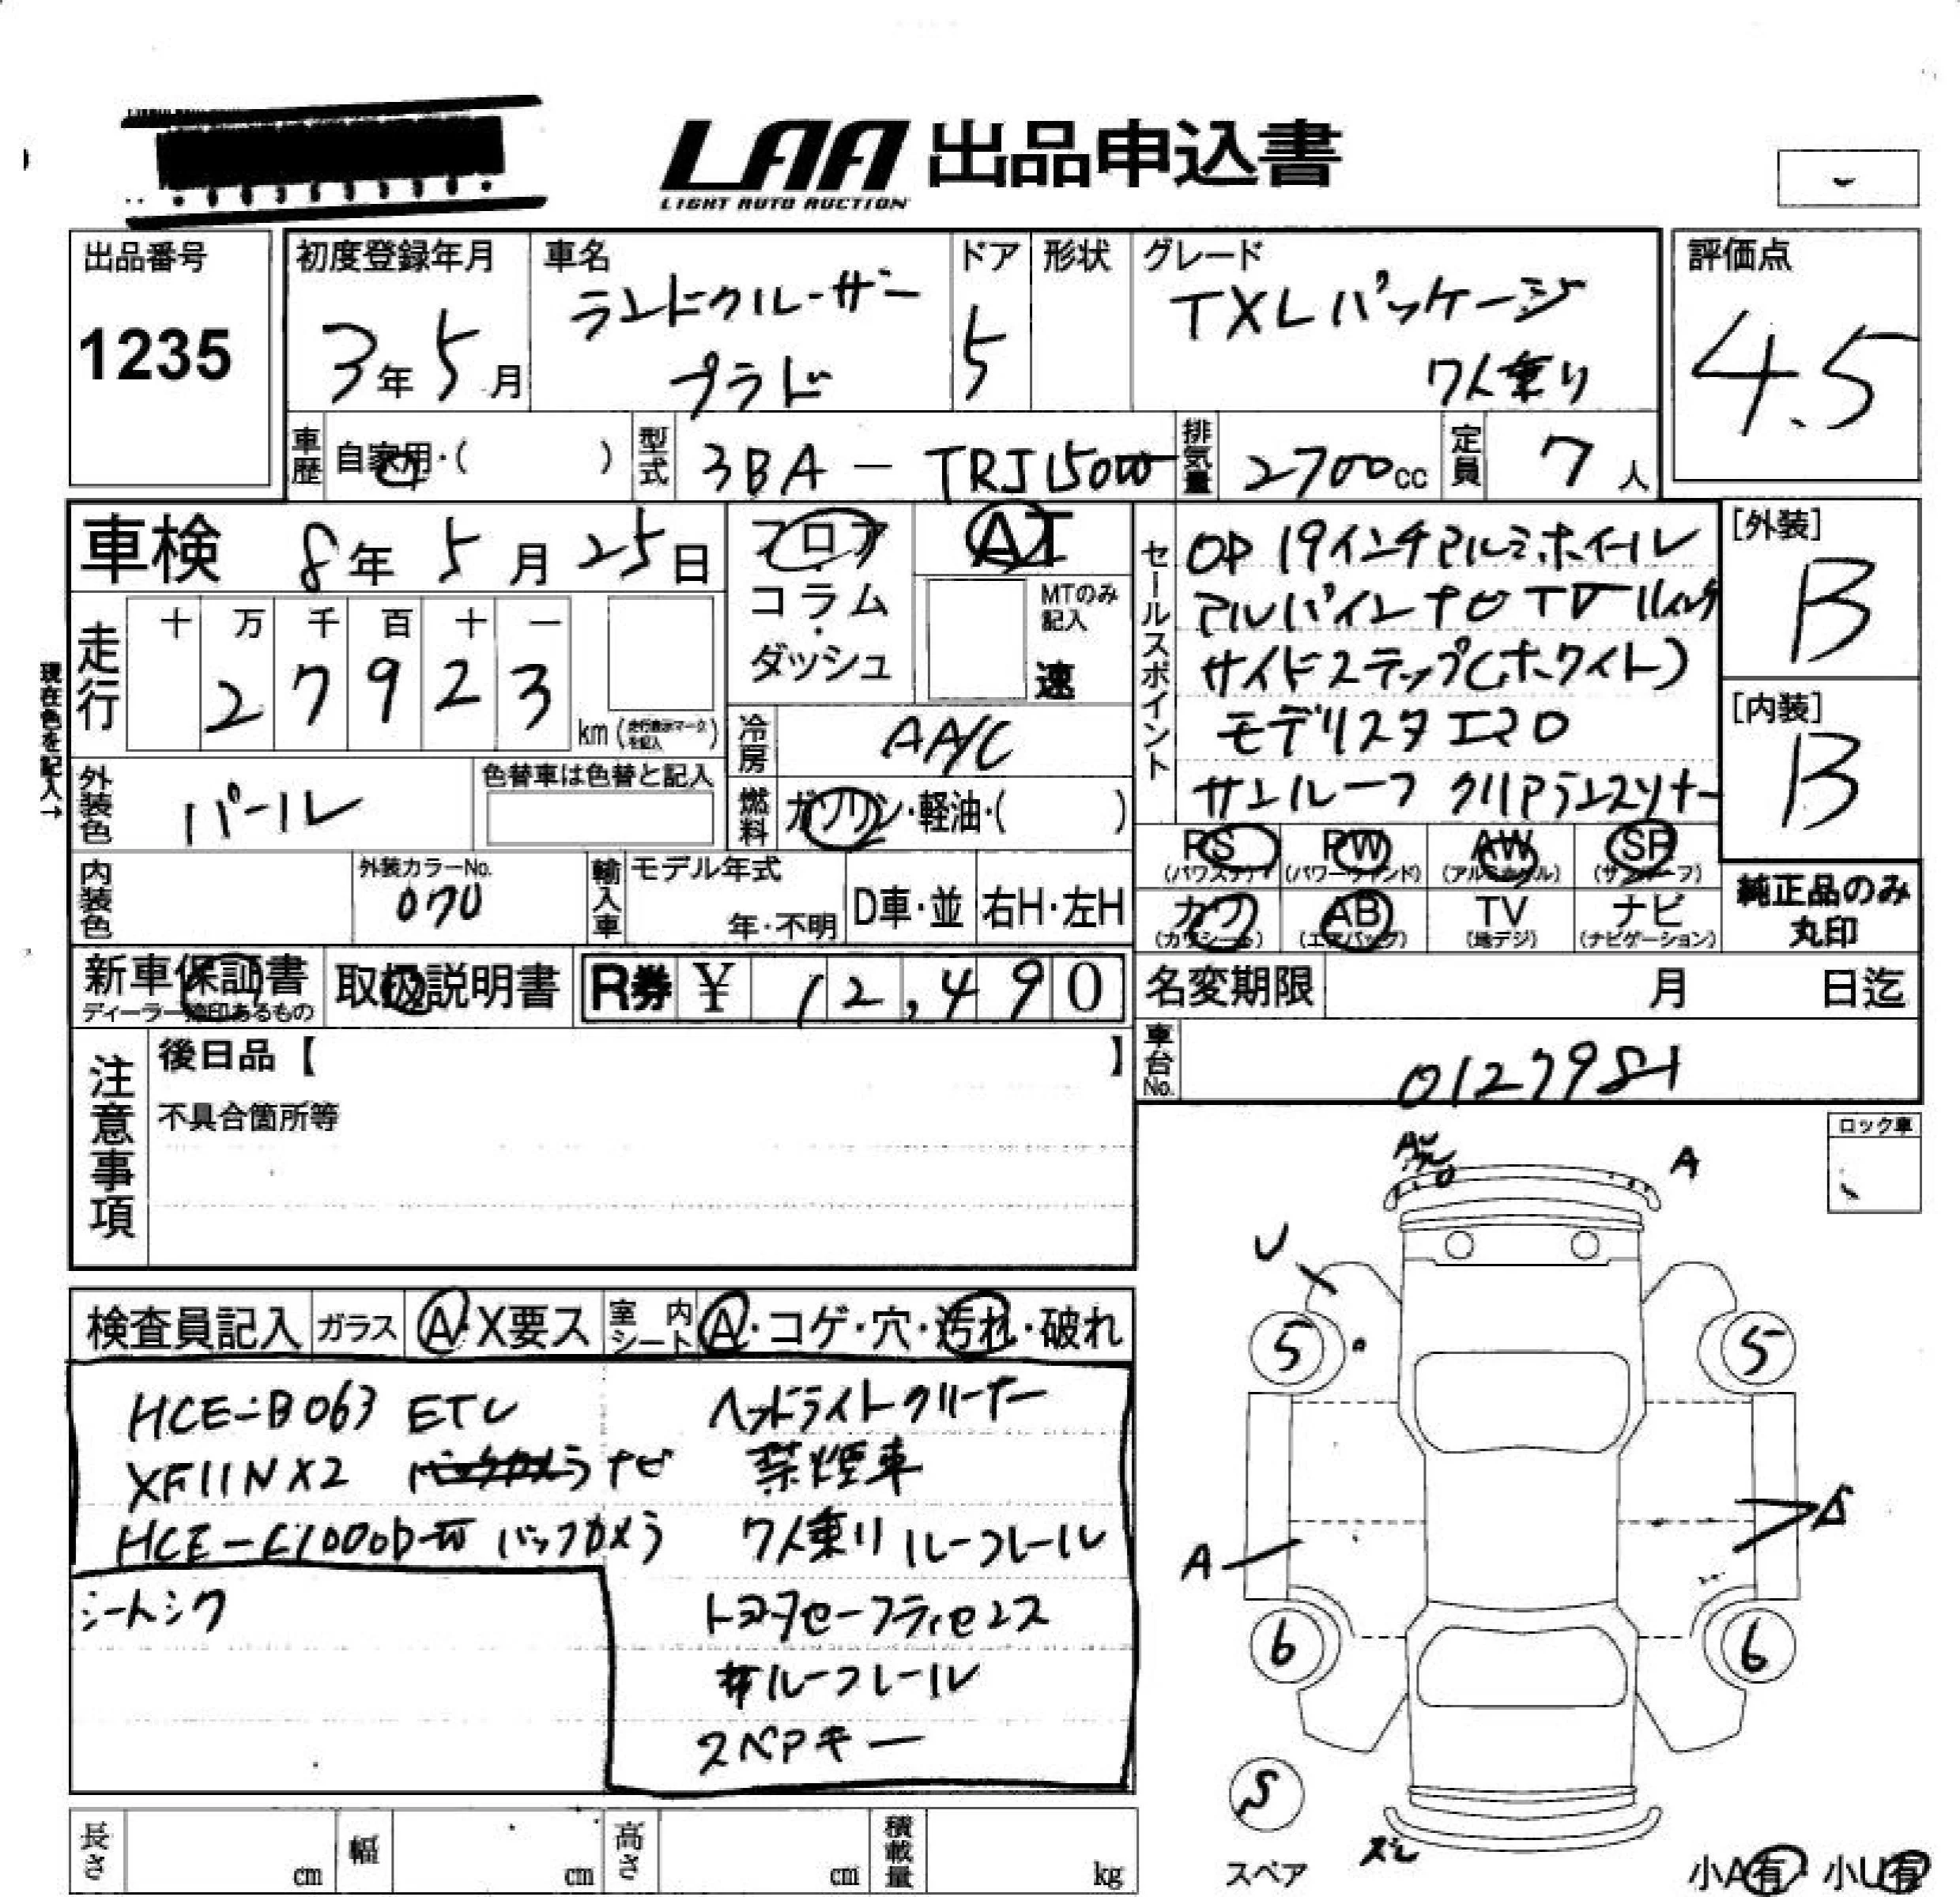 LAA 出品申込書
LIGHT AUTO AUCTION
出品番号
1235
初度登録年月
3年5月
車名
ランドクルーザー
プラド
ドア
5
形状
グレード
TXLパッケージ
7人乗り
評価点
4.5
車歴
自家用・( )
型式
3BA-TRJ150W
排気量
2700cc
定員
7人
車検 8年5月25日
フロア
コラム
・
ダッシュ
AT
MTのみ
記入
速
セールスポイント
OP 19インチアルミホイール
アルパインナビTV
サイドステップ(ホワイト)
モデリスタエアロ
サンルーフ クリアランスソナー
[外装]
B
[内装]
B
現在色を記入→
走行
十 万 千 百 十 一
2 7 9 2 3
km (走行表示マークを記入)
冷房
AA/C
外装色
パール
色替車は色替と記入
燃料
ガソリン・軽油・( )
PS
(パワステ)
PW
(パワーウインド)
AW
(アルミホイル)
SR
(サンルーフ)
内装色
外装カラーNo.
070
輸入車
モデル年式
年・不明
D車・並
右H・左H
カワ
(カワシート)
AB
(エアバッグ)
TV
(地デジ)
ナビ
(ナビゲーション)
純正品のみ
丸印
新車保証書
ディーラー捺印あるもの
取扱説明書
R券 ¥ 12,490
名変期限 月 日迄
注意事項
後日品【 】
不具合箇所等
車台No.
0127981
ロック車
検査員記入
ガラス
A・X要ス
室内シート
A・コゲ・穴・汚れ・破れ
HCE-B063 ETC
XF11NX2 ナビ
HCE-C1000D バックカメラ
ヘッドライトクリーナー
禁煙車
7人乗り ルーフレール
トヨタセーフティセンス
ルーフレール
スペアキー
シートシワ
A
U
5
5
A
A
6
6
S
スペア
ズレ
小A有・小U有
長さ cm
幅 cm
高さ cm
積載量 kg